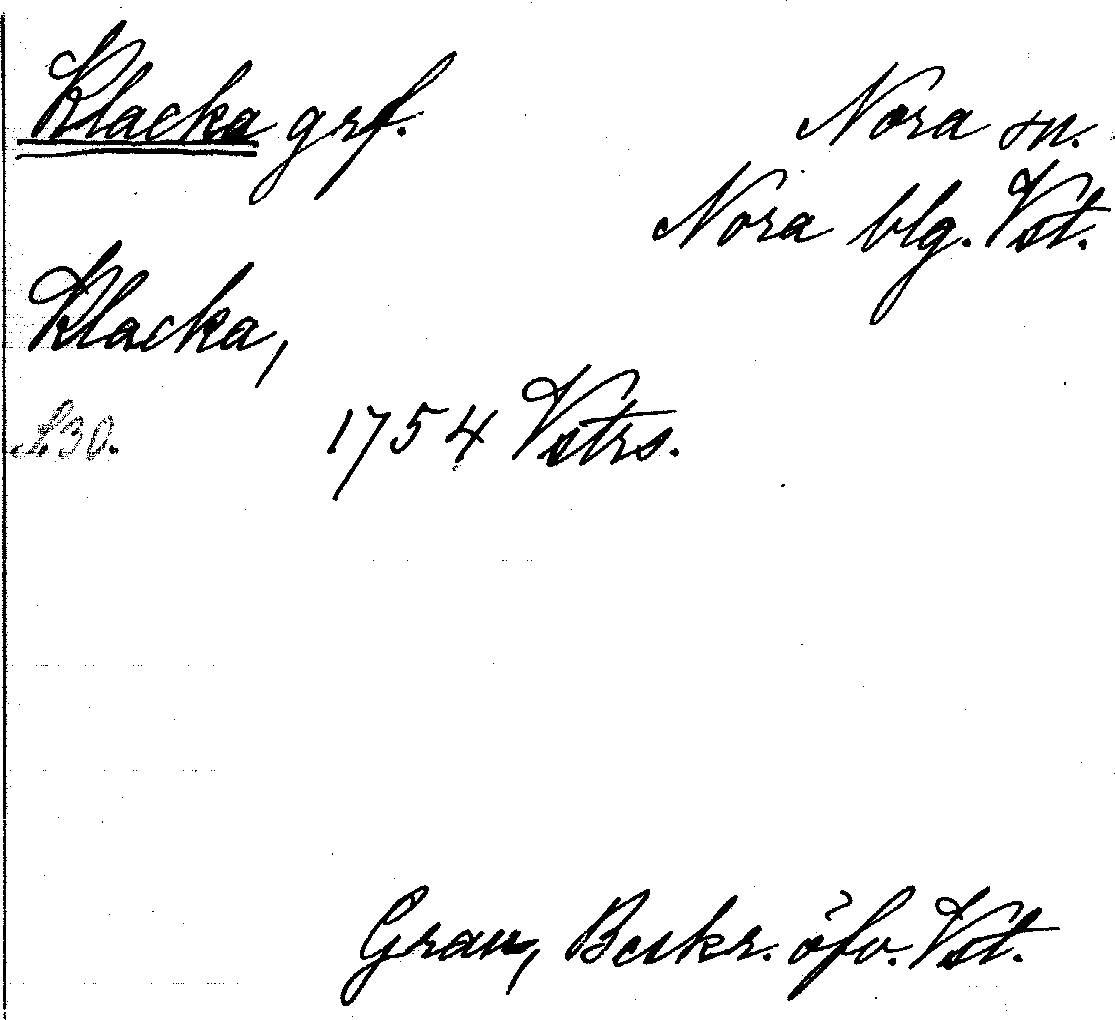 Klacka grf.
Nora sn.
Nora blg. Vst.
Klacka,
s. 30.
1754 Vstrs.
Grau, Beskr. öfv. Vst.